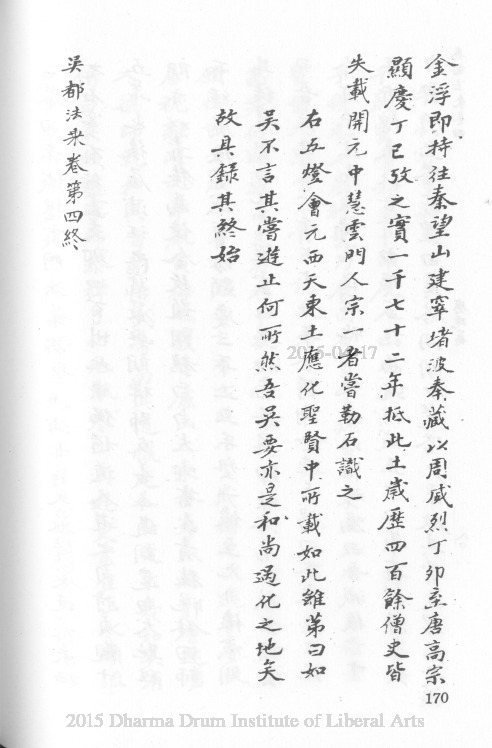 金浮即持往秦望山建窣堵波奉藏以周威烈丁卯至唐高宗
顯慶丁巳攷之實一千七十二年抵此土歲歷四百餘僧史皆
失載開元中慧雲門人宗一者嘗勒石識之
右五燈會元西天東土應化聖賢中所載如此雖第曰如
吳不言其嘗遊止何所然吾吳要亦是和尚過化之地矣
故具錄其終始
吳都法乘卷第四終
170
2015-04-17
2015 Dharma Drum Institute of Liberal Arts